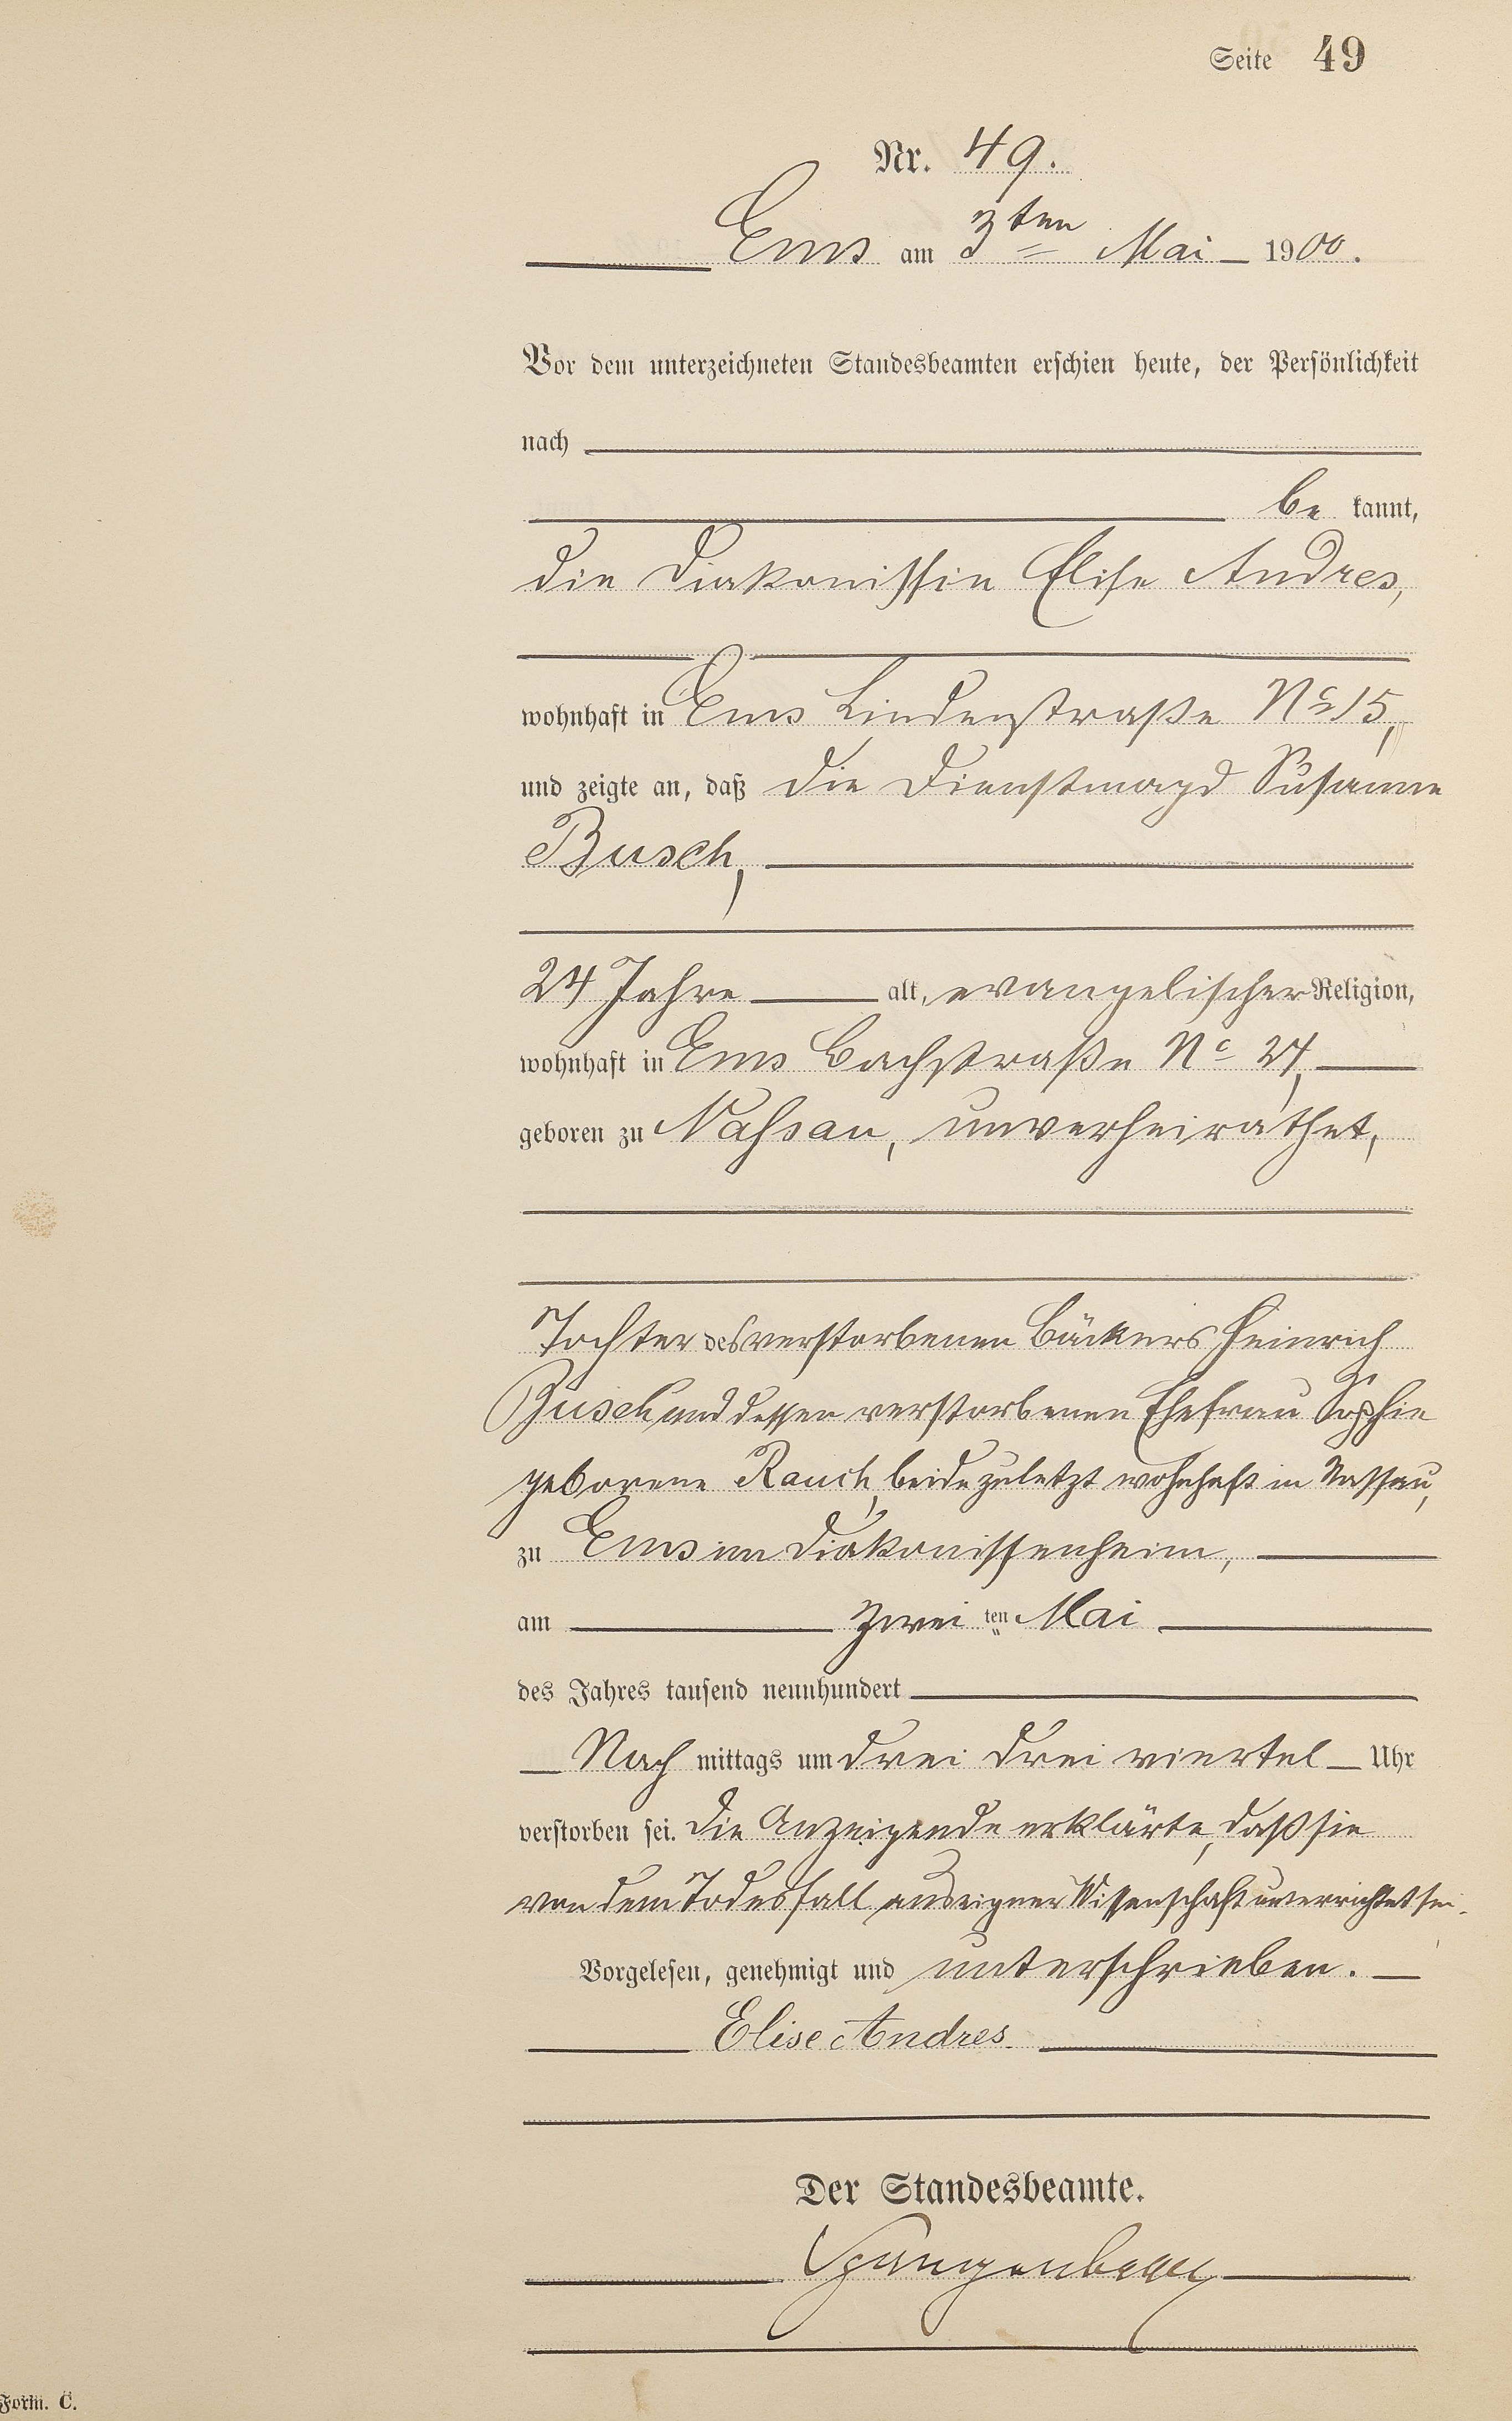 Seite 49
Nr. 49.
Ems am 3ten Mai 1900.
Vor dem unterzeichneten Standesbeamten erschien heute, der Persönlichkeit
nach
be kannt,
die Diakonissin Elise Andres,
wohnhaft in Ems Lindenstraße No 15,
und zeigte an, daß die Dienstmagd Susanne
Busch,
24 Jahre alt, evangelischer Religion,
wohnhaft in Ems Bachstraße No 24,
geboren zu Nassau, unverheirathet,
Tochter des verstorbenen Bäckers Heinrich
Busch und dessen verstorbenen Ehefrau Sophie
geborene Rauch, beide zuletzt wohnhaft in Nassau,
zu Ems im Diakonissenheim,
am zwei ten Mai
des Jahres tausend neunhundert
Nach mittags um drei drei viertel Uhr
verstorben sei. Die Anzeigende erklärte, daß sie
von dem Todesfall aus eigner Wissenschaft unterrichtet sei.
Vorgelesen, genehmigt und unterschrieben.
Elise Andres.
Der Standesbeamte.
Form. C.